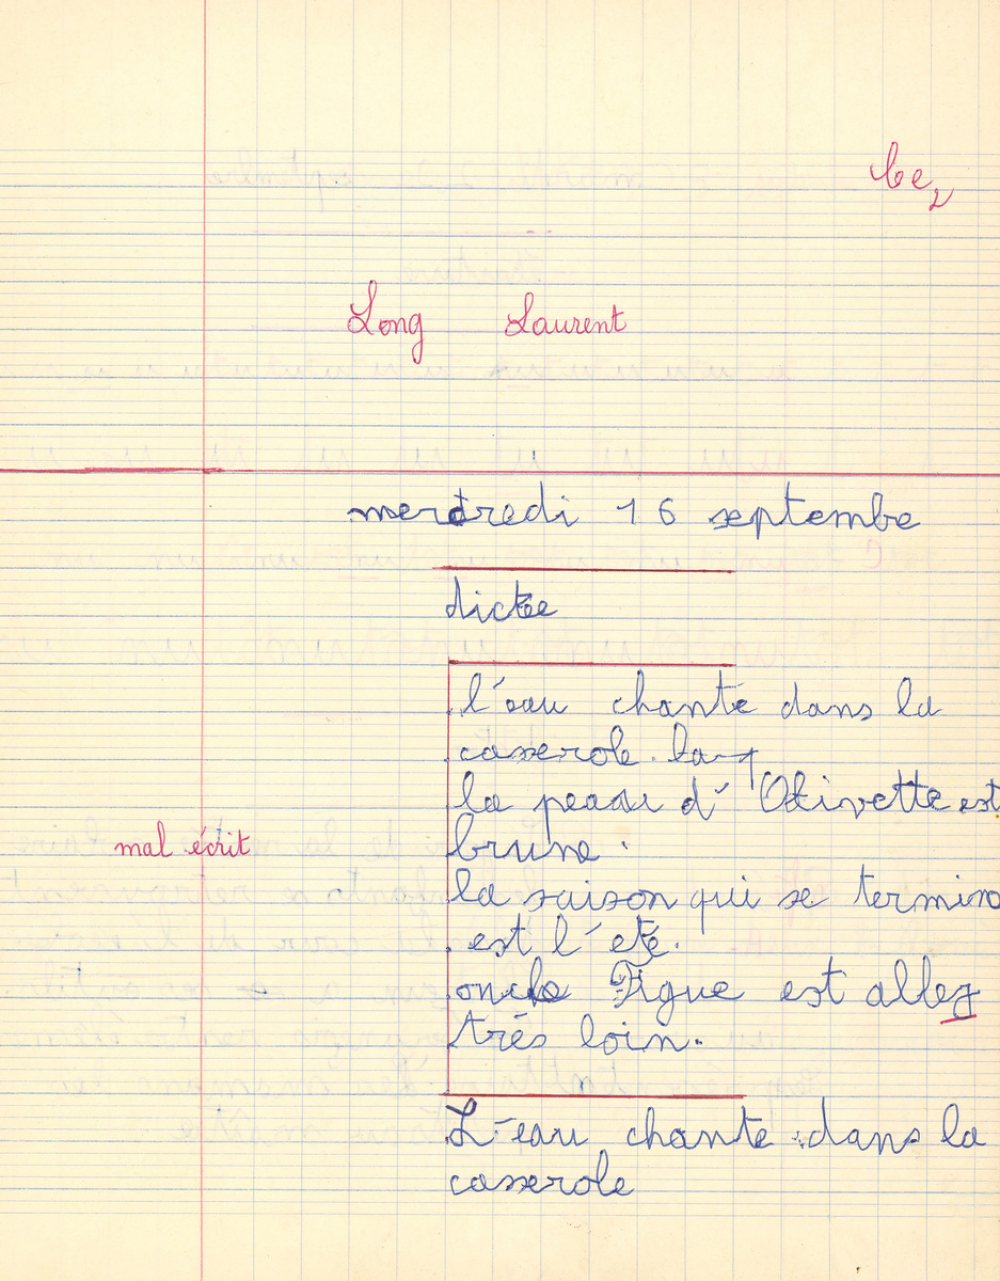 Ce2
Long Laurent
mercredi 16 septembe
dictée
l'eau chante dans la
casserole. la
la peau d'Olivette est
brune.
mal écrit
la saison qui se termine
est l'eté.
oncle Figue est allez
trés loin.
L'eau chante dans la
casserole